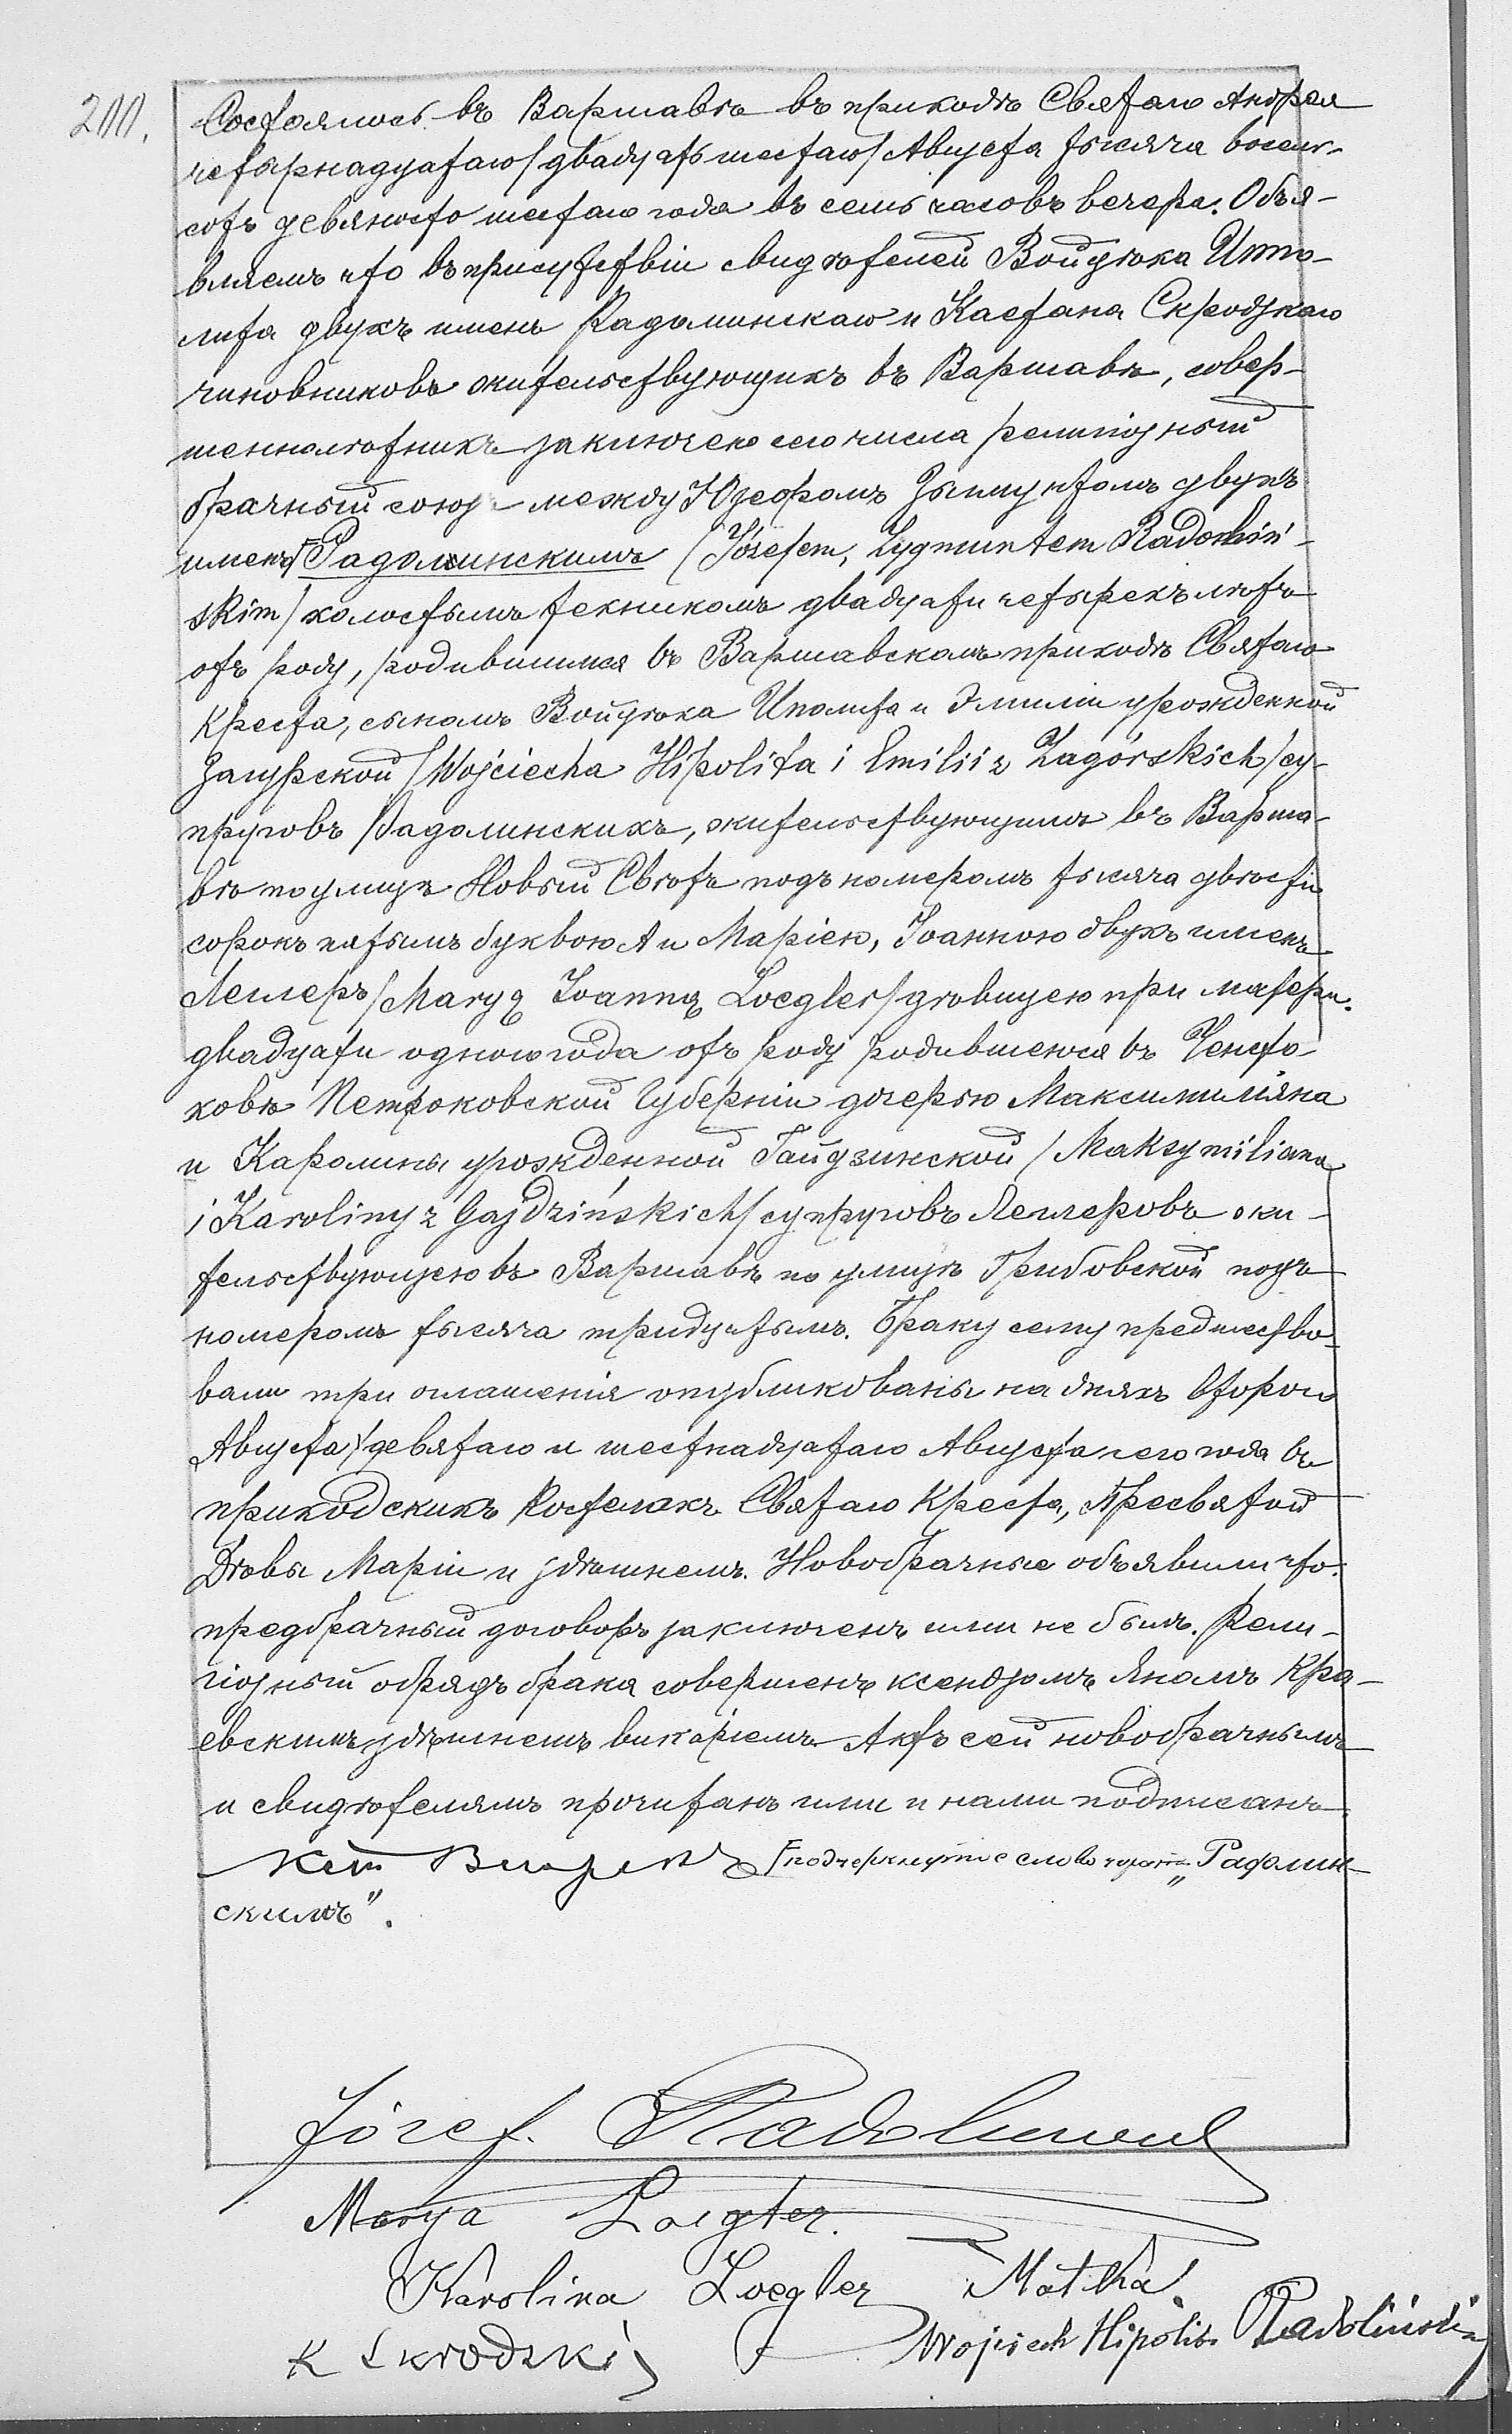 200.
Состоялось въ Варшавѣ въ приходѣ Святаго Андрея
четырнадцатаго/двадцать шестаго/Августа тысяча восемь-
сотъ девяносто шестаго года въ семь часовъ вечера. Объя-
вляемъ что въ присутствіи свидѣтелей Войцѣха Иппо-
лита двухъ именъ Радолинскаго и Каетана Скродзкаго
чиновниковъ жительствующихъ въ Варшавѣ, совер-
шеннолѣтнихъ заключенъ сего числа религіозный
брачный союзъ между Юзефомъ Зыгмунтомъ двухъ
именъ Радолинскимъ (Józefem, Zygmuntem Radoliń-
skim/холостымъ техникомъ двадцати четырехъ лѣтъ
отъ роду, родившимся въ Варшавскомъ приходѣ Святаго
Креста, сыномъ Войцѣха Иполита и Эмиліи урожденной
Загурской/Wojciecha Hipolita i Emilii z Zagórskich/су-
пруговъ Радолинскихъ, жительствующимъ въ Варша-
вѣ по улицѣ Новый Свѣтъ подъ номеромъ тысяча двѣсти
сорокъ пятымъ буквою А и Маріею, Іоанною двухъ именъ
Леглеръ/Maryą Joanną Loegler/дѣвицею при матери.
двадцати одного года отъ роду родившеюся въ Ченсто-
ховѣ Петроковской Губерніи дочерью Максимиліяна
и Каролины урожденной Гайдзинской/Maksymiliana
i Karoliny z Gajdzińskich/супруговъ Леглеровъ жи-
тельствующею въ Варшавѣ по улицѣ Грибовской подъ
номеромъ тысяча тридцатымъ. Браку сему предшество-
вали три оглашенія опубликованы на дняхъ второго
Августа/девятаго и шестнадцатаго Августа сего года въ
приходскихъ Костелахъ Святаго Креста, Пресвятой
Дѣвы Маріи и здѣшнемъ. Новобрачные объявили что
предбрачный договоръ заключенъ ими не былъ. Рели-
гіозный обрядъ брака совершенъ ксендзомъ Яномъ Кра-
евскимъ здѣшнемъ викаріемъ. Актъ сей новобрачнымъ
и свидѣтелямъ прочитанъ ими и нами подписанъ.
подчеркнутое слово „Радолин-
скимъ".
Józef Radoliński
Marya Loegler.
Karolina Loegler Matka
K Skrodzki Wojciech Hipolit Radoliński